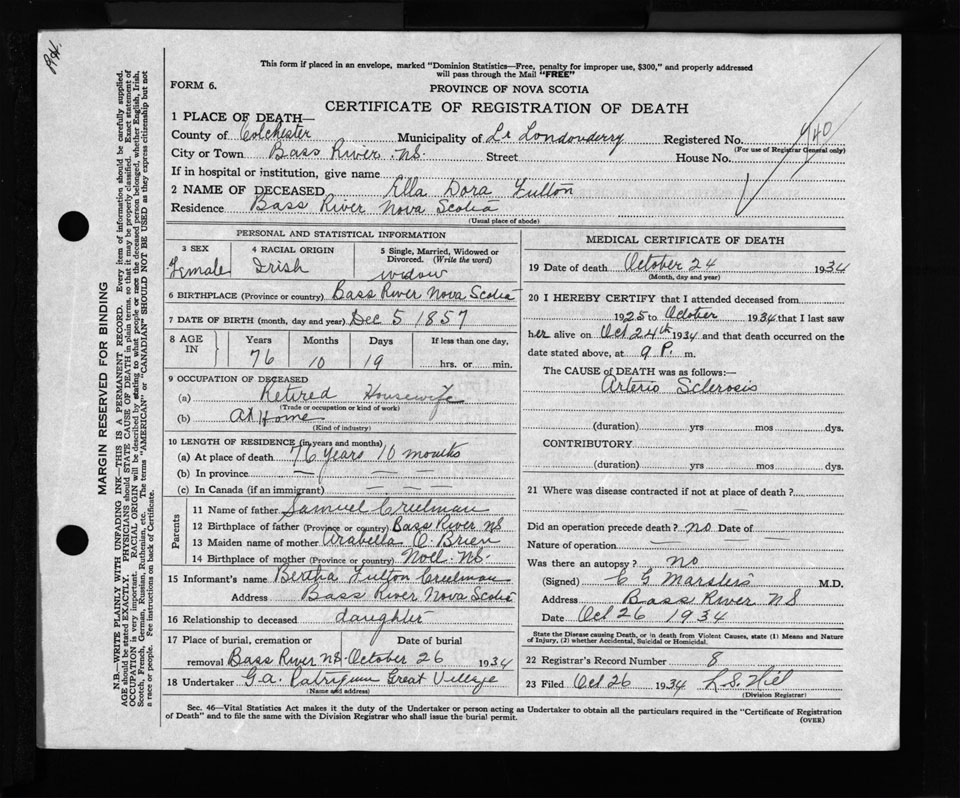 This form if placed in an envelope, marked "Dominion Statistics—Free, penalty for improper use, $300," and properly addressed
will pass through the Mail "FREE"
FORM 6.
PROVINCE OF NOVA SCOTIA
CERTIFICATE OF REGISTRATION OF DEATH
1 PLACE OF DEATH—
County of Colchester Municipality of Lr Londonderry Registered No. 940
(For use of Registrar General only)
City or Town Bass River N.S. Street House No.
If in hospital or institution, give name
2 NAME OF DECEASED Ella Dora Fulton
Residence Bass River Nova Scotia
(Usual place of abode)
PERSONAL AND STATISTICAL INFORMATION
3 SEX 4 RACIAL ORIGIN 5 Single, Married, Widowed or
Divorced. (Write the word)
Female Irish widow
6 BIRTHPLACE (Province or country) Bass River Nova Scotia
7 DATE OF BIRTH (month, day and year) Dec 5 1857
8 AGE IN Years Months Days If less than one day,
76 10 19 hrs. or min.
9 OCCUPATION OF DECEASED
(a) Retired Housewife
(Trade or occupation or kind of work)
(b) At Home
(Kind of industry)
10 LENGTH OF RESIDENCE (in years and months)
(a) At place of death 76 years 10 months
(b) In province — — — —
(c) In Canada (if an immigrant) — — — —
Parents
11 Name of father Samuel Creelman
12 Birthplace of father (Province or country) Bass River NS
13 Maiden name of mother Arabella O'Brien
14 Birthplace of mother (Province or country) Noel NS.
15 Informant's name Bertha Fulton Creelman
Address Bass River Nova Scotia
16 Relationship to deceased daughter
17 Place of burial, cremation or Date of burial
removal Bass River NS. October 26 1934
18 Undertaker G.A. Patriquin Great Village
(Name and address)
MEDICAL CERTIFICATE OF DEATH
19 Date of death October 24 1934
(Month, day and year)
20 I HEREBY CERTIFY that I attended deceased from
1925 to October 1934 that I last saw
her alive on Oct 24th 1934 and that death occurred on the
date stated above, at 9 P. m.
The CAUSE OF DEATH was as follows:—
Arterio Sclerosis
(duration) yrs mos dys.
CONTRIBUTORY
(duration) yrs mos dys.
21 Where was disease contracted if not at place of death?
Did an operation precede death? no Date of
Nature of operation — — — —
Was there an autopsy? no
(Signed) C G Marsters M.D.
Address Bass River NS
Date Oct 26 1934
State the Disease causing Death, or in death from Violent Causes, state (1) Means and Nature
of Injury, (2) whether Accidental, Suicidal or Homicidal.
22 Registrar's Record Number 8
23 Filed Oct 26 1934 L. S.
(Division Registrar)
Sec. 46—Vital Statistics Act makes it the duty of the Undertaker or person acting as Undertaker to obtain all the particulars required in the "Certificate of Registration
of Death" and to file the same with the Division Registrar who shall issue the burial permit.
(OVER)
MARGIN RESERVED FOR BINDING
N.B.—WRITE PLAINLY WITH UNFADING INK—THIS IS A PERMANENT RECORD. Every item of information should be carefully supplied.
AGE should be stated EXACTLY. PHYSICIANS should STATE CAUSE OF DEATH in plain terms, so that it may be properly classified. Exact statement of
OCCUPATION is very important. RACIAL ORIGIN will be described by stating to what people or race the deceased person belonged, whether English, Irish,
Scotch, French, German, Russian, Ruthenian, etc. The terms "AMERICAN" or "CANADIAN" SHOULD NOT BE USED as they express citizenship but not
a race or people. See instructions on back of Certificate.